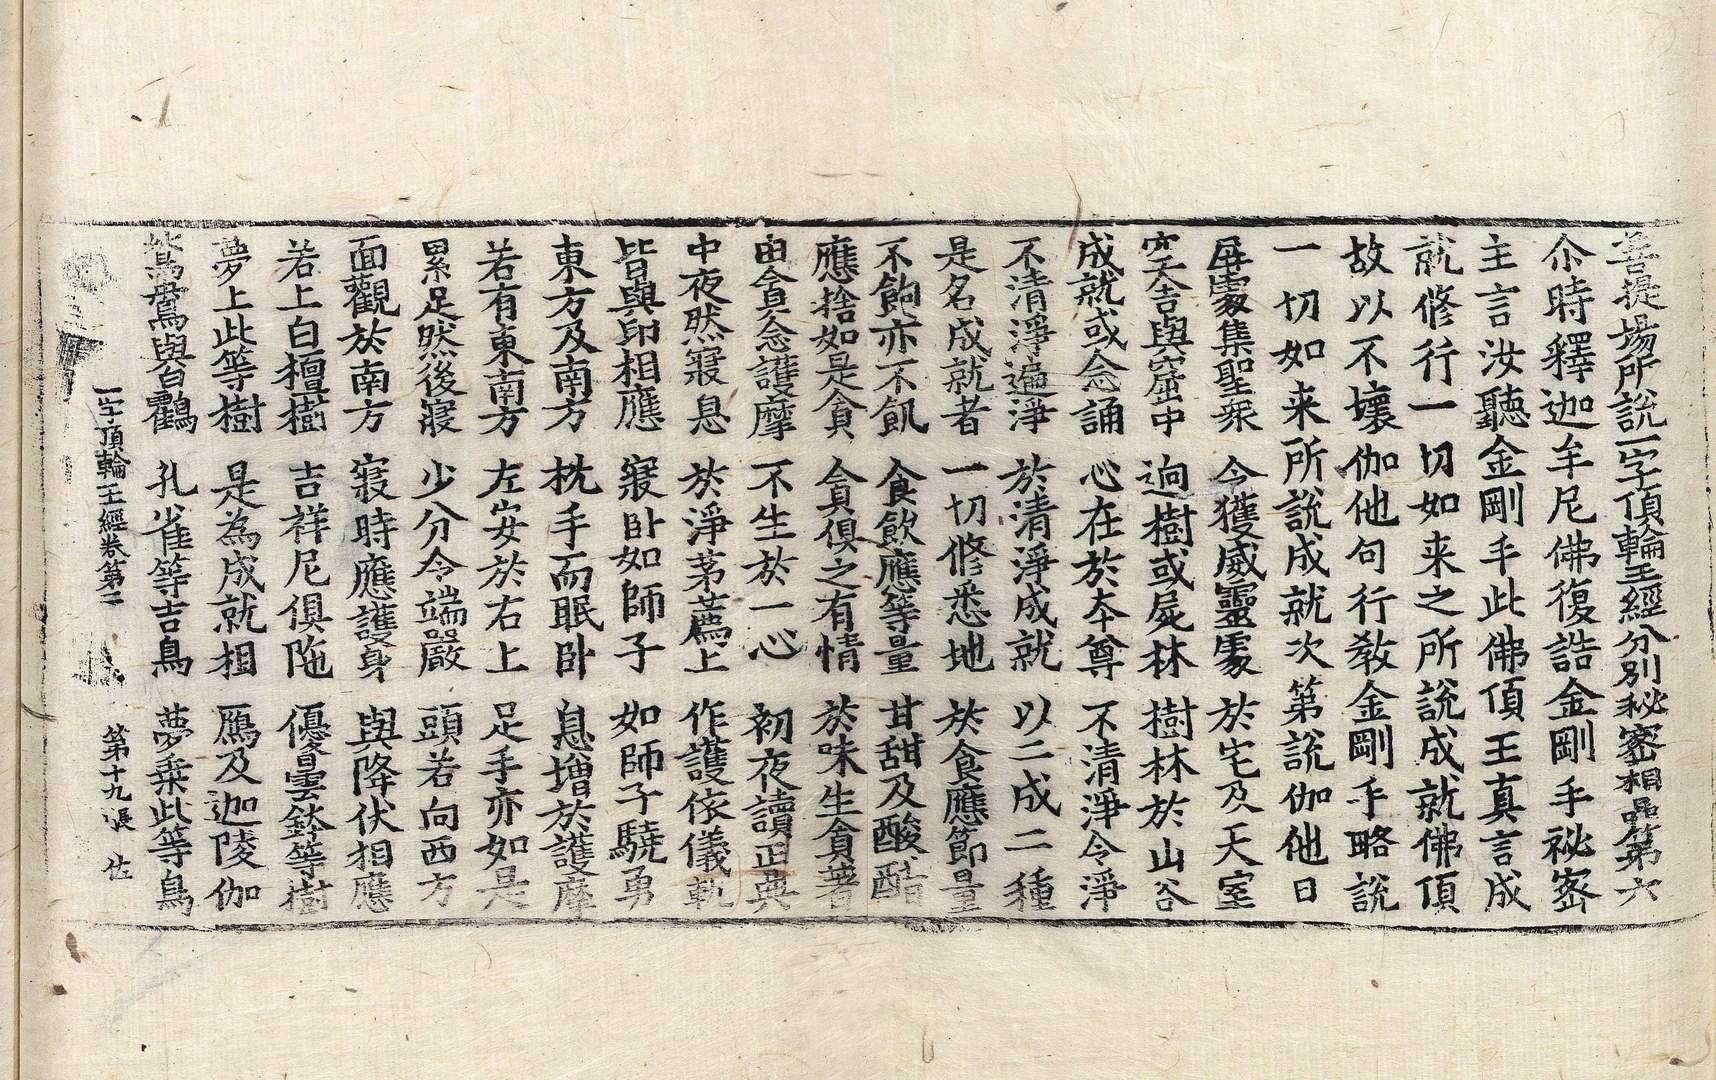 菩提場所說一字頂輪王經分別秘密相品第六
尒時釋迦牟尼佛復誥金剛手祕密
主言汝聽金剛手此佛頂王真言成
就修行一切如来之所說成就佛頂
故以不壞伽他句行教金剛手略說
一切如来所說成就次第說伽他曰
屏處集聖衆 令獲威靈處 於宅及天室
空舍與窟中 逈樹或屍林 樹林於山谷
成就或念誦 心在於本尊 不清淨令淨
不清淨遍淨 於清淨成就 以二成二種
是名成就者 一切修悉地 於食應節量
不飽亦不飢 食飲應等量 甘甜及酸醋
應捨如是貪 貪俱之有情 於味生貪著
由貪念護摩 不生於一心 初夜讀正典
中夜然寢息 於淨茅薦上 作護依儀軌
皆與印相應 寢卧如師子 如師子驍勇
東方及南方 枕手而眠卧 息增於護摩
若有東南方 左安於右上 足手亦如是
累足然後寢 少分令端嚴 頭若向西方
面觀於南方 寢時應護身 與降伏相應
若上白檀樹 吉祥尼俱陁 優曇雲鉢等樹
夢上此等樹 是為成就相 鴈及迦陵伽
鴛鴦與白鸖 孔雀等吉鳥 夢乗此等鳥
一字頂輪王經卷第二 第十九張 佐